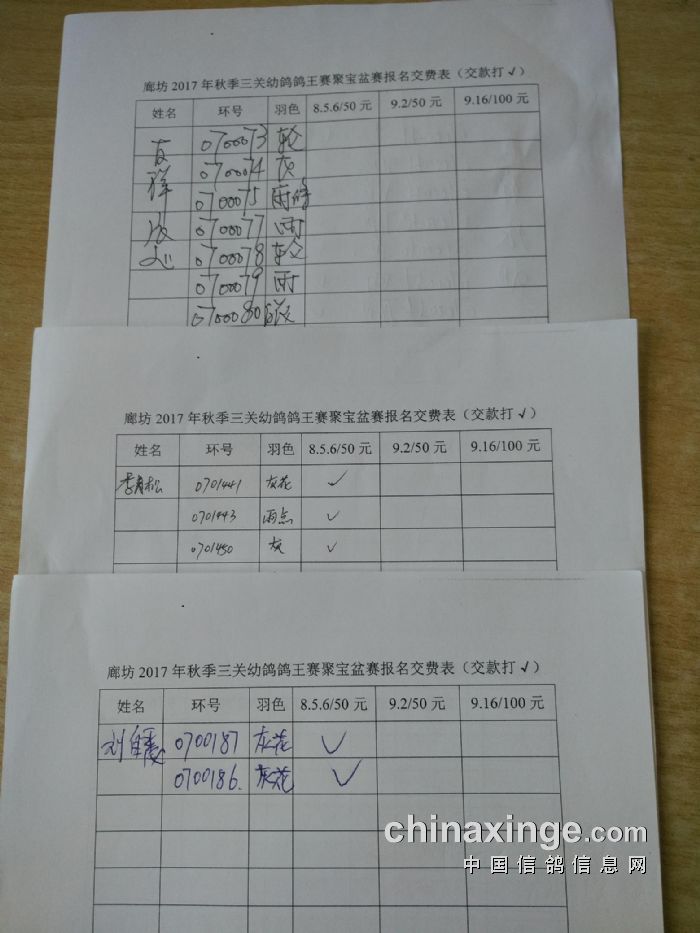 廊坊 2017 年秋季三关幼鸽鸽王赛聚宝盆赛报名交费表（交款打 √）
姓名 环号 羽色 8.5.6/50 元 9.2/50 元 9.16/100 元
0700073
0700074 灰
0700075 雨
0700077 雨
0700078
0700079 雨
0700080
廊坊 2017 年秋季三关幼鸽鸽王赛聚宝盆赛报名交费表（交款打 √）
姓名 环号 羽色 8.5.6/50 元 9.2/50 元 9.16/100 元
李月松 0701441 灰花 √
0701443 雨点 √
0701450 灰 √
廊坊 2017 年秋季三关幼鸽鸽王赛聚宝盆赛报名交费表（交款打 √）
姓名 环号 羽色 8.5.6/50 元 9.2/50 元 9.16/100 元
刘 0700187 灰花 √
0700186. 灰花 √
chinaxinge.com
中国信鸽信息网